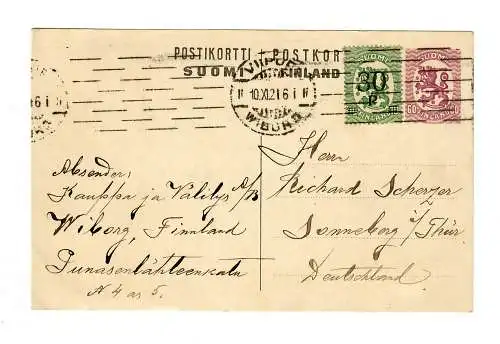 POSTIKORTTI - POSTKOR
SUOMI FINLAND
VIIPURI
10.XI.21 6 I
WIBORG
SUOMI
30
P
FINLAND
SUOMI
60
FINLAND
Herr
Richard Scherzer
Sonneberg i/Thür.
Deutschland
Absender:
Kauppa ja Välitys A/B
Wiborg, Finnland
Punasenlähteenkatu
N 4 as 5.